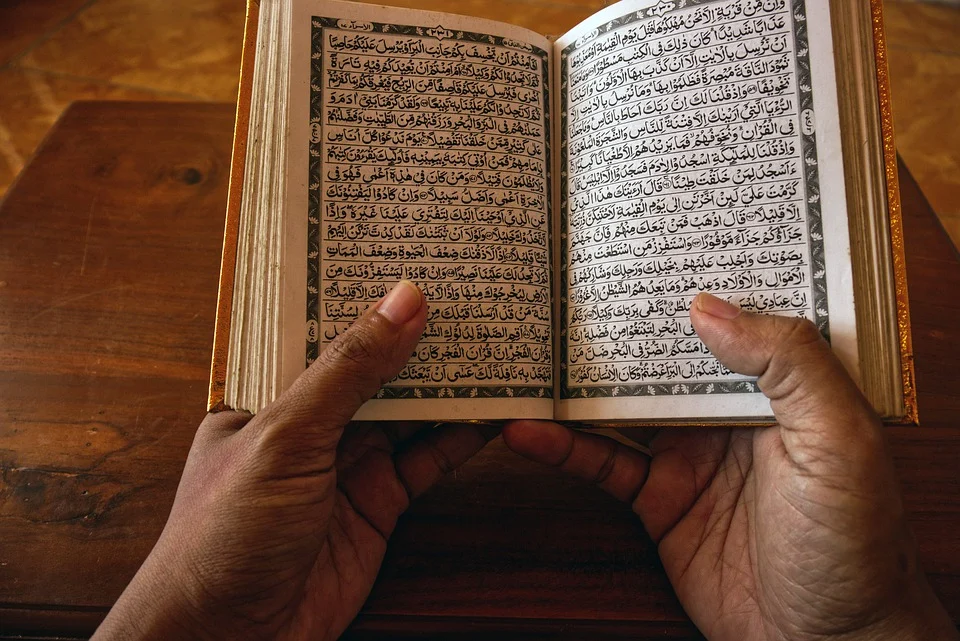 وَاِنْ مِّنْ قَرْيَةٍ اِلَّا نَحْنُ مُهْلِكُوْهَا قَبْلَ يَوْمِ الْقِيٰمَةِ
عَذَابًا شَدِيْدًا كَانَ ذٰلِكَ فِي الْكِتٰبِ مَسْطُوْرًا
اَنْ نُّرْسِلَ بِالْاٰيٰتِ اِلَّا اَنْ كَذَّبَ بِهَا الْاَوَّلُوْنَ وَاٰتَيْنَا
ثَمُوْدَ النَّاقَةَ مُبْصِرَةً فَظَلَمُوْا بِهَا وَمَا نُرْسِلُ بِالْاٰيٰتِ اِلَّا
تَخْوِيْفًا وَاِذْ قُلْنَا لَكَ اِنَّ رَبَّكَ اَحَاطَ بِالنَّاسِ وَمَا جَعَلْنَا
الرُّءْيَا الَّتِيْٓ اَرَيْنٰكَ اِلَّا فِتْنَةً لِّلنَّاسِ وَالشَّجَرَةَ الْمَلْعُوْنَةَ
فِي الْقُرْاٰنِ وَنُخَوِّفُهُمْ فَمَا يَزِيْدُهُمْ اِلَّا طُغْيَانًا كَبِيْرًا
وَاِذْ قُلْنَا لِلْمَلٰٓئِكَةِ اسْجُدُوْا لِاٰدَمَ فَسَجَدُوْٓا اِلَّآ اِبْلِيْسَ قَالَ
ءَاَسْجُدُ لِمَنْ خَلَقْتَ طِيْنًا قَالَ اَرَءَيْتَكَ هٰذَا الَّذِيْ
كَرَّمْتَ عَلَيَّ لَئِنْ اَخَّرْتَنِ اِلٰى يَوْمِ الْقِيٰمَةِ لَاَحْتَنِكَنَّ ذُرِّيَّتَهٗٓ
اِلَّا قَلِيْلًا قَالَ اذْهَبْ فَمَنْ تَبِعَكَ مِنْهُمْ فَاِنَّ جَهَنَّمَ
جَزَآؤُكُمْ جَزَآءً مَّوْفُوْرًا وَاسْتَفْزِزْ مَنِ اسْتَطَعْتَ مِنْهُمْ
بِصَوْتِكَ وَاَجْلِبْ عَلَيْهِمْ بِخَيْلِكَ وَرَجِلِكَ وَشَارِكْهُمْ فِي
الْاَمْوَالِ وَالْاَوْلَادِ وَعِدْهُمْ وَمَا يَعِدُهُمُ الشَّيْطٰنُ اِلَّا غُرُوْرًا
اِنَّ عِبَادِيْ لَيْسَ
وَكَفٰى بِرَبِّكَ وَكِيْلًا
الْبَحْرِ لِتَبْتَغُوْا مِنْ فَضْلِهٖ اِنَّهٗ
مَسَّكُمُ الضُّرُّ فِي الْبَحْرِ ضَلَّ مَنْ
اِلَى الْبَرِّ اَعْرَضْتُمْ وَكَانَ الْاِنْسَانُ كَفُوْرًا
اَفَاَمِنْتُمْ اَنْ يَّخْسِفَ بِكُمْ جَانِبَ الْبَرِّ اَوْ يُرْسِلَ عَلَيْكُمْ حَاصِبًا
ثُمَّ لَا تَجِدُوْا لَكُمْ وَكِيْلًا اَمْ اَمِنْتُمْ اَنْ يُّعِيْدَكُمْ فِيْهِ تَارَةً
اُخْرٰى فَيُرْسِلَ عَلَيْكُمْ قَاصِفًا مِّنَ الرِّيْحِ فَيُغْرِقَكُمْ بِمَا كَفَرْتُمْ
ثُمَّ لَا تَجِدُوْا لَكُمْ عَلَيْنَا بِهٖ تَبِيْعًا وَلَقَدْ كَرَّمْنَا بَنِيْٓ اٰدَمَ وَ
حَمَلْنٰهُمْ فِي الْبَرِّ وَالْبَحْرِ وَرَزَقْنٰهُمْ مِّنَ الطَّيِّبٰتِ وَفَضَّلْنٰهُمْ
عَلٰى كَثِيْرٍ مِّمَّنْ خَلَقْنَا تَفْضِيْلًا يَوْمَ نَدْعُوْا كُلَّ اُنَاسٍ
بِاِمَامِهِمْ فَمَنْ اُوْتِيَ كِتٰبَهٗ بِيَمِيْنِهٖ فَاُولٰٓئِكَ يَقْرَءُوْنَ كِتٰبَهُمْ
وَلَا يُظْلَمُوْنَ فَتِيْلًا وَمَنْ كَانَ فِيْ هٰذِهٖٓ اَعْمٰى فَهُوَ فِي
الْاٰخِرَةِ اَعْمٰى وَاَضَلُّ سَبِيْلًا وَاِنْ كَادُوْا لَيَفْتِنُوْنَكَ
عَنِ الَّذِيْٓ اَوْحَيْنَآ اِلَيْكَ لِتَفْتَرِيَ عَلَيْنَا غَيْرَهٗ وَاِذًا
لَّاتَّخَذُوْكَ خَلِيْلًا وَلَوْلَآ اَنْ ثَبَّتْنٰكَ لَقَدْ كِدْتَّ تَرْكَنُ اِلَيْهِمْ
شَيْئًا قَلِيْلًا اِذًا لَّاَذَقْنٰكَ ضِعْفَ الْحَيٰوةِ وَضِعْفَ الْمَمَاتِ
ثُمَّ لَا تَجِدُ لَكَ عَلَيْنَا نَصِيْرًا وَاِنْ كَادُوْا لَيَسْتَفِزُّوْنَكَ مِنَ
الْاَرْضِ لِيُخْرِجُوْكَ مِنْهَا وَاِذًا لَّا خِلٰفَكَ اِلَّا قَلِيْلًا
سُنَّةَ مَنْ قَدْ اَرْسَلْنَا قَبْلَكَ مِنْ لِسُنَّتِنَا
تَحْوِيْلًا اَقِمِ الصَّلٰوةَ لِدُلُوْكِ
وَقُرْاٰنَ الْفَجْرِ اِنَّ قُرْاٰنَ الْفَجْرِ كَانَ
فَتَهَجَّدْ بِهٖ نَافِلَةً لَّكَ عَسٰٓى اَنْ يَّبْعَثَكَ